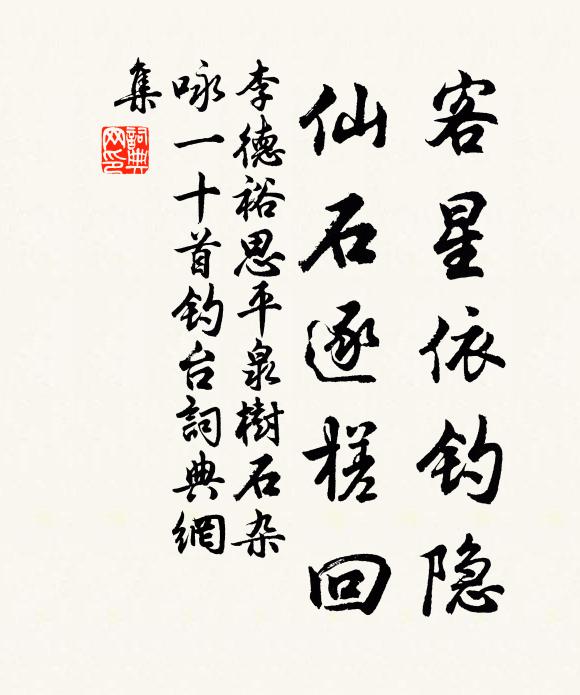 客星依钓隐
仙石逐槎回
李德裕思平泉樹石杂
咏一十首钓台詞典網
集
詞典
网印